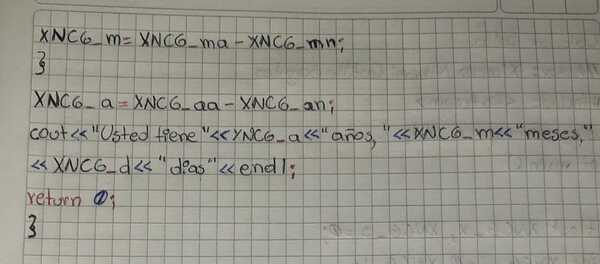 XNCG_m = XNCG_ma - XNCG_mn;
}
XNCG_a = XNCG_aa - XNCG_an;
cout << "Usted tiene" << XNCG_a << "años," << XNCG_m << "meses,"
<< XNCG_d << "dias" << endl;
return 0;
}